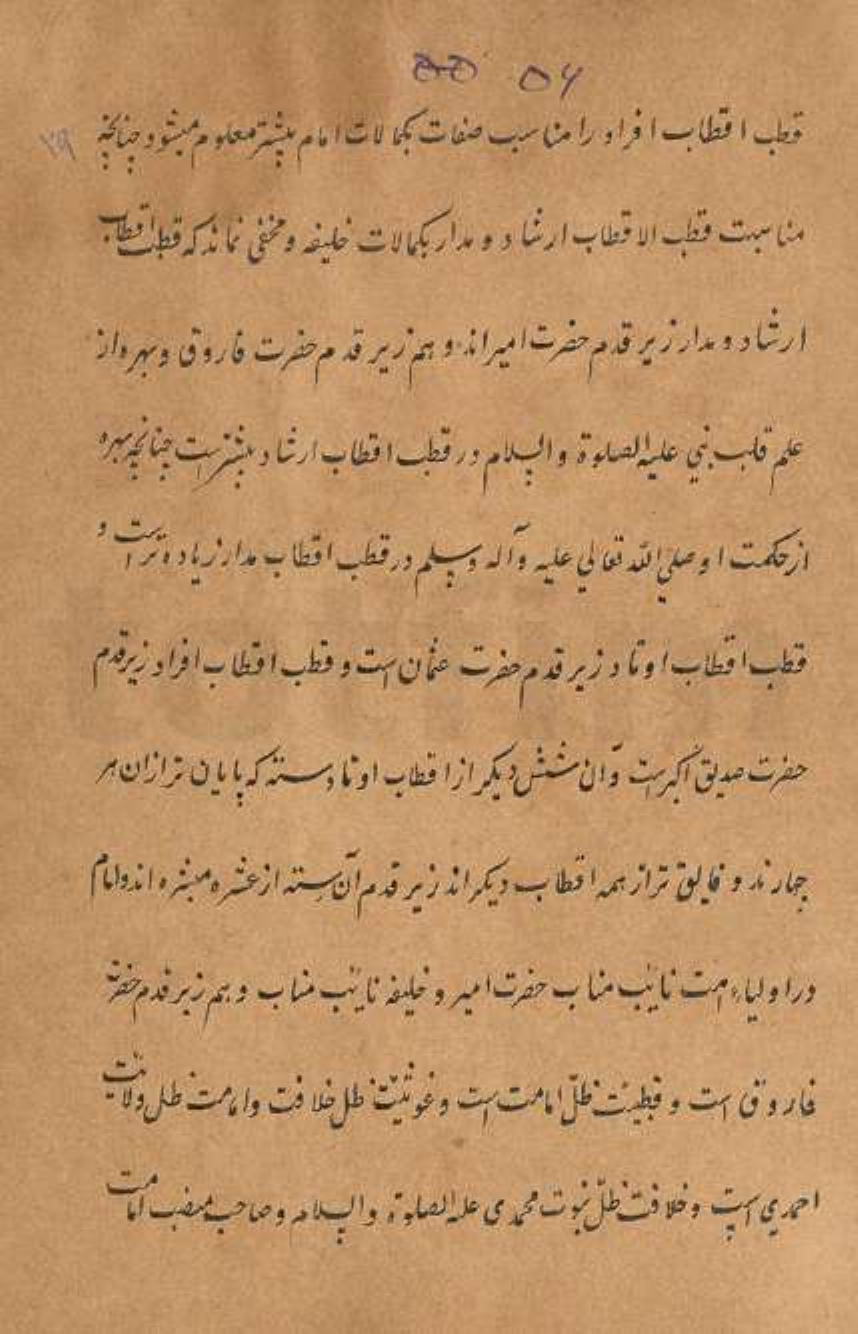 ۵۶
۲۹
قطب اقطاب افراد را مناسب صفات بکمالات امام بیشتر معلوم میشود چنانچه
مناسبت قطب الاقطاب ارشاد و مدار بکمالات خلیفه و مخفی نماند که قطب اقطاب
ارشاد و مدار زیر قدم حضرت امیراند و هم زیر قدم حضرت فاروق و بهره از
علم قلب نبی علیه الصلوة والسلام در قطب اقطاب ارشاد بیشتر است چنانچه بهره
از حکمت او صلی الله تعالی علیه وآله وسلم در قطب اقطاب مدار زیاده تر است و
قطب اقطاب اوتاد زیر قدم حضرت عثمان است و قطب اقطاب افراد زیر قدم
حضرت صدیق اکبر است وآن شش دیکر از اقطاب اوتاد سته که پایان تر ازان هر
چهارند و فایق تر از همه اقطاب دیکراند زیر قدم آن سته از عشره مبشره اند وامام
در اولیاء امت نائب مناب حضرت امیر و خلیفه نائب مناب و هم زیر قدم حضرت
فاروق است و قطبیت ظلّ امامت است و غوثیت ظل خلافت وامامت ظل ولایت
احمدی است و خلافت ظلّ نبوت محمدی علیه الصلوة والسلام و صاحب منصب امامت